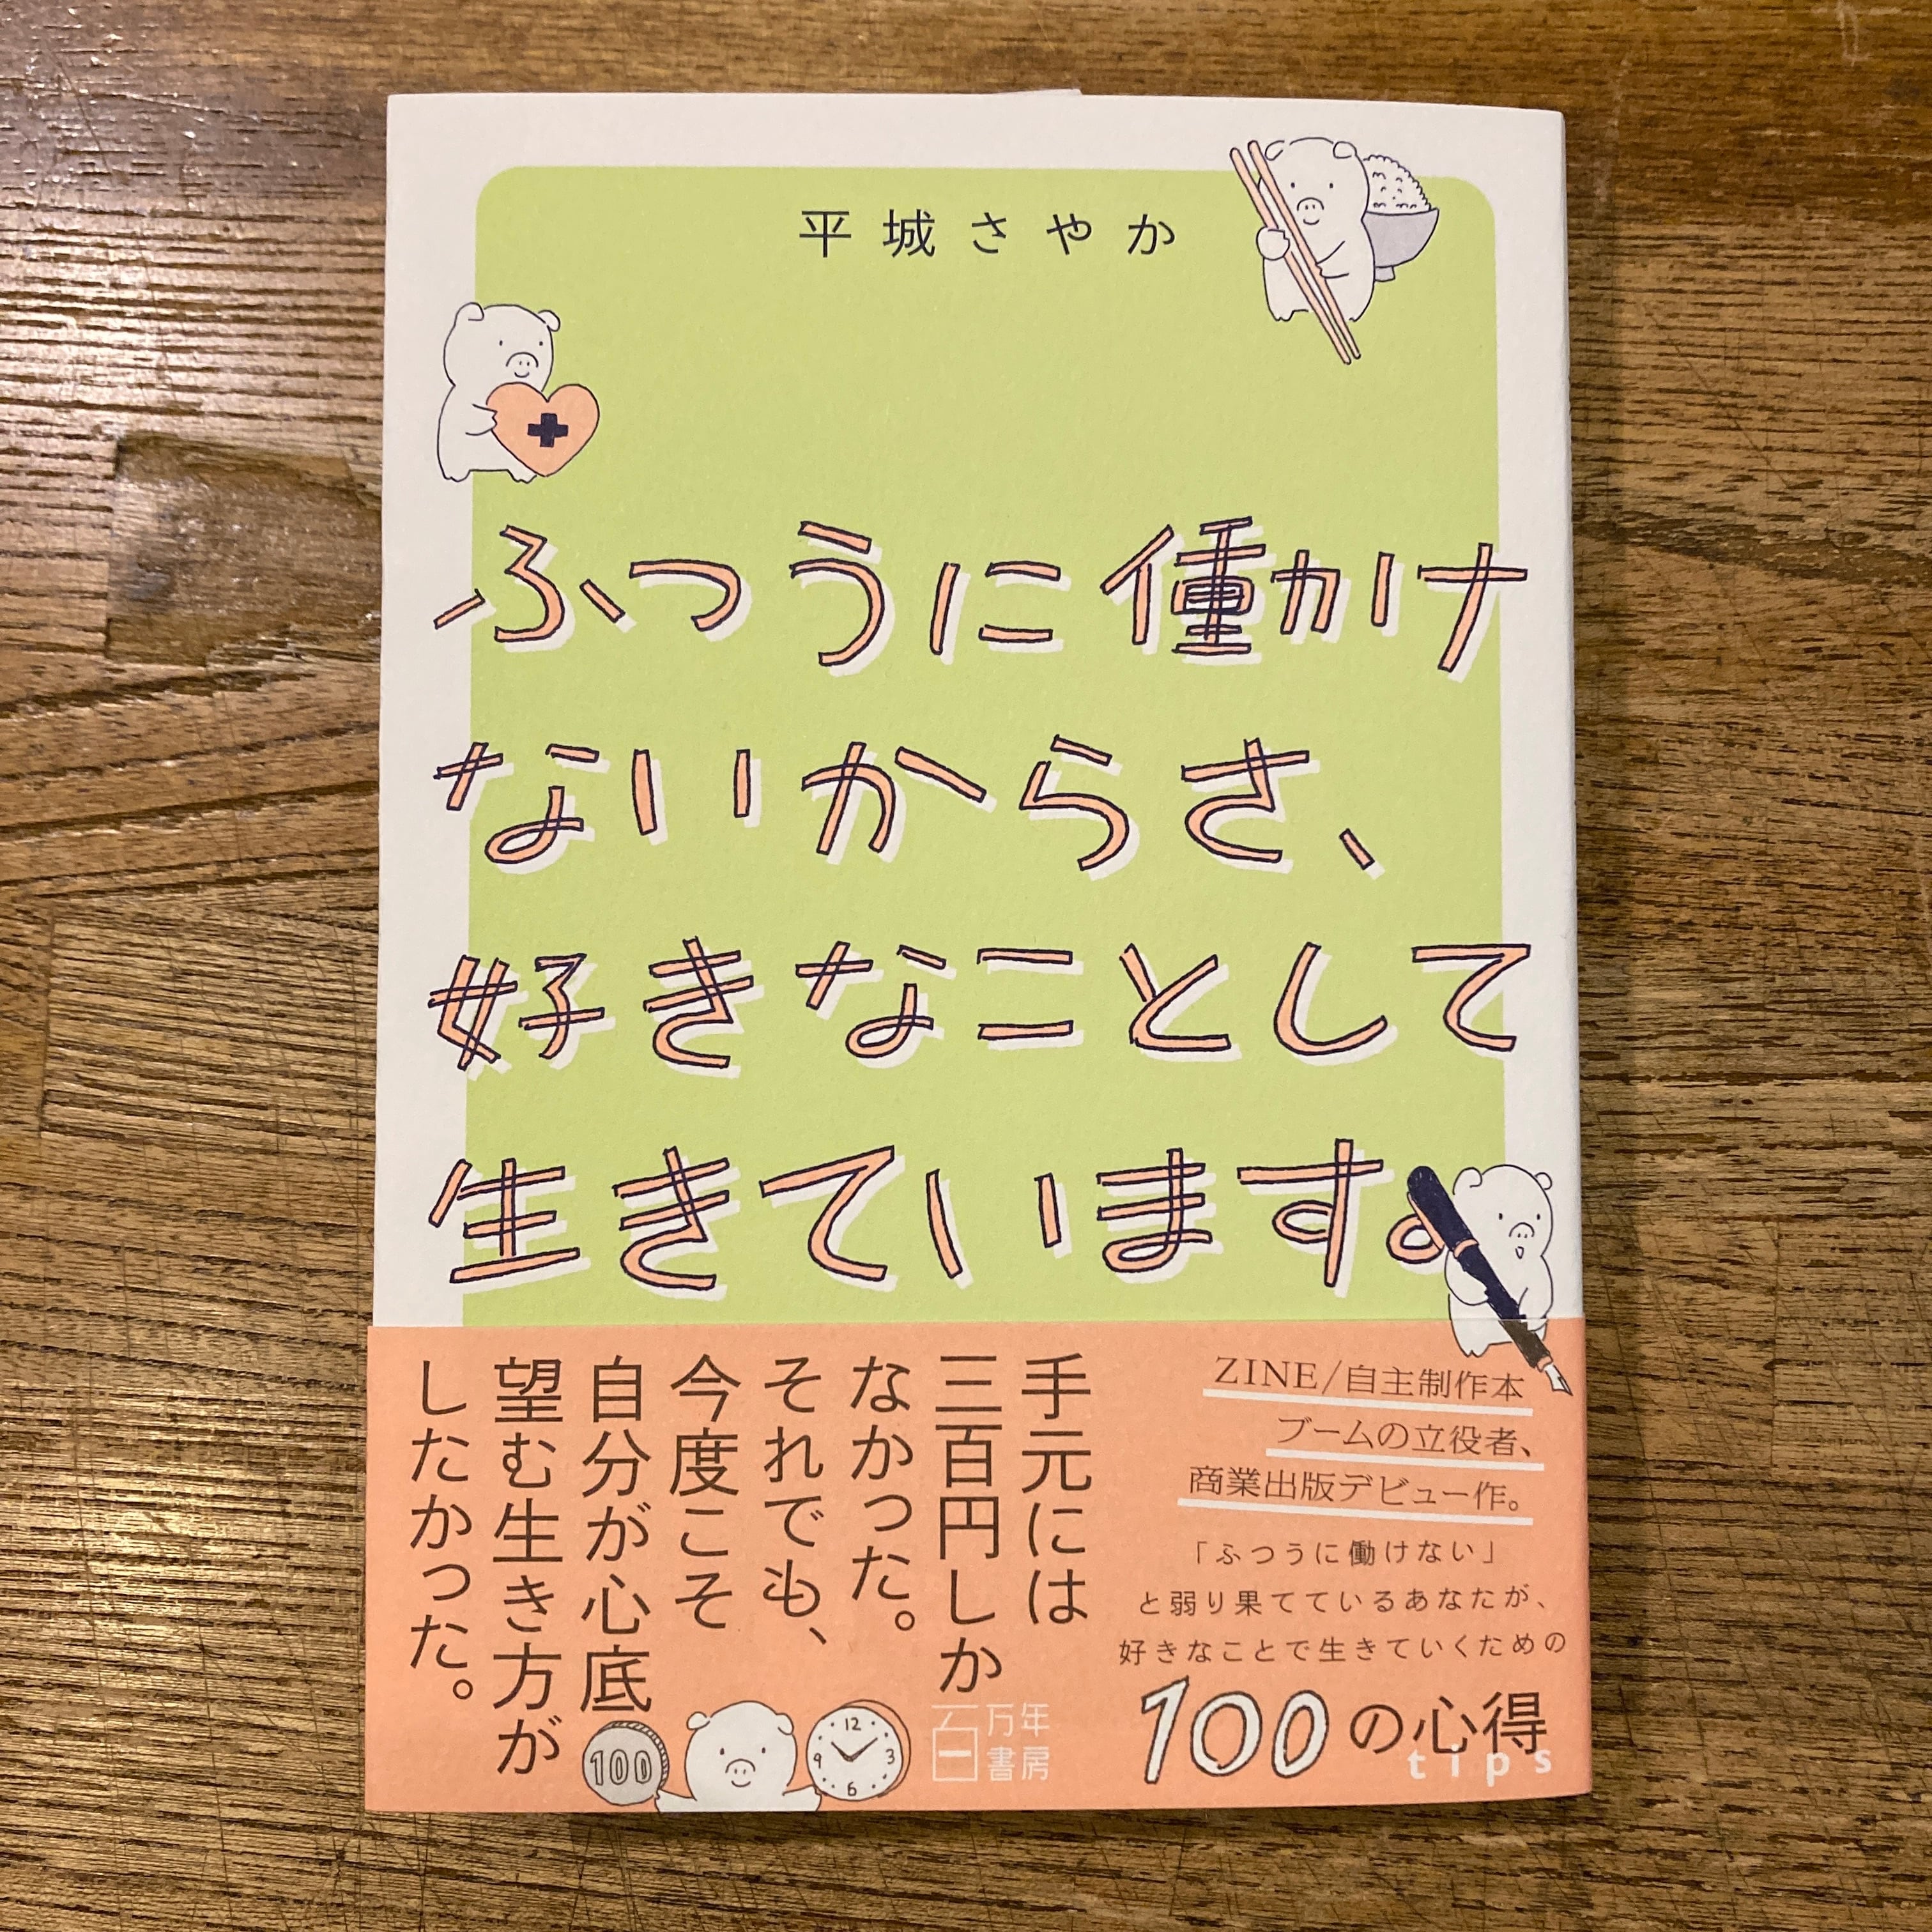 平城さやか
ふつうに働け
ないからさ、
好きなことして
生きています。
ZINE/自主制作本
ブームの立役者、
商業出版デビュー作。
「ふつうに働けない」
と弱り果てているあなたが、
好きなことで生きていくための
100の心得
tips
手元には
三百円しか
なかった。
それでも、
今度こそ
自分が心底
望む生き方が
したかった。
100
12
3
6
9
百万年
書房